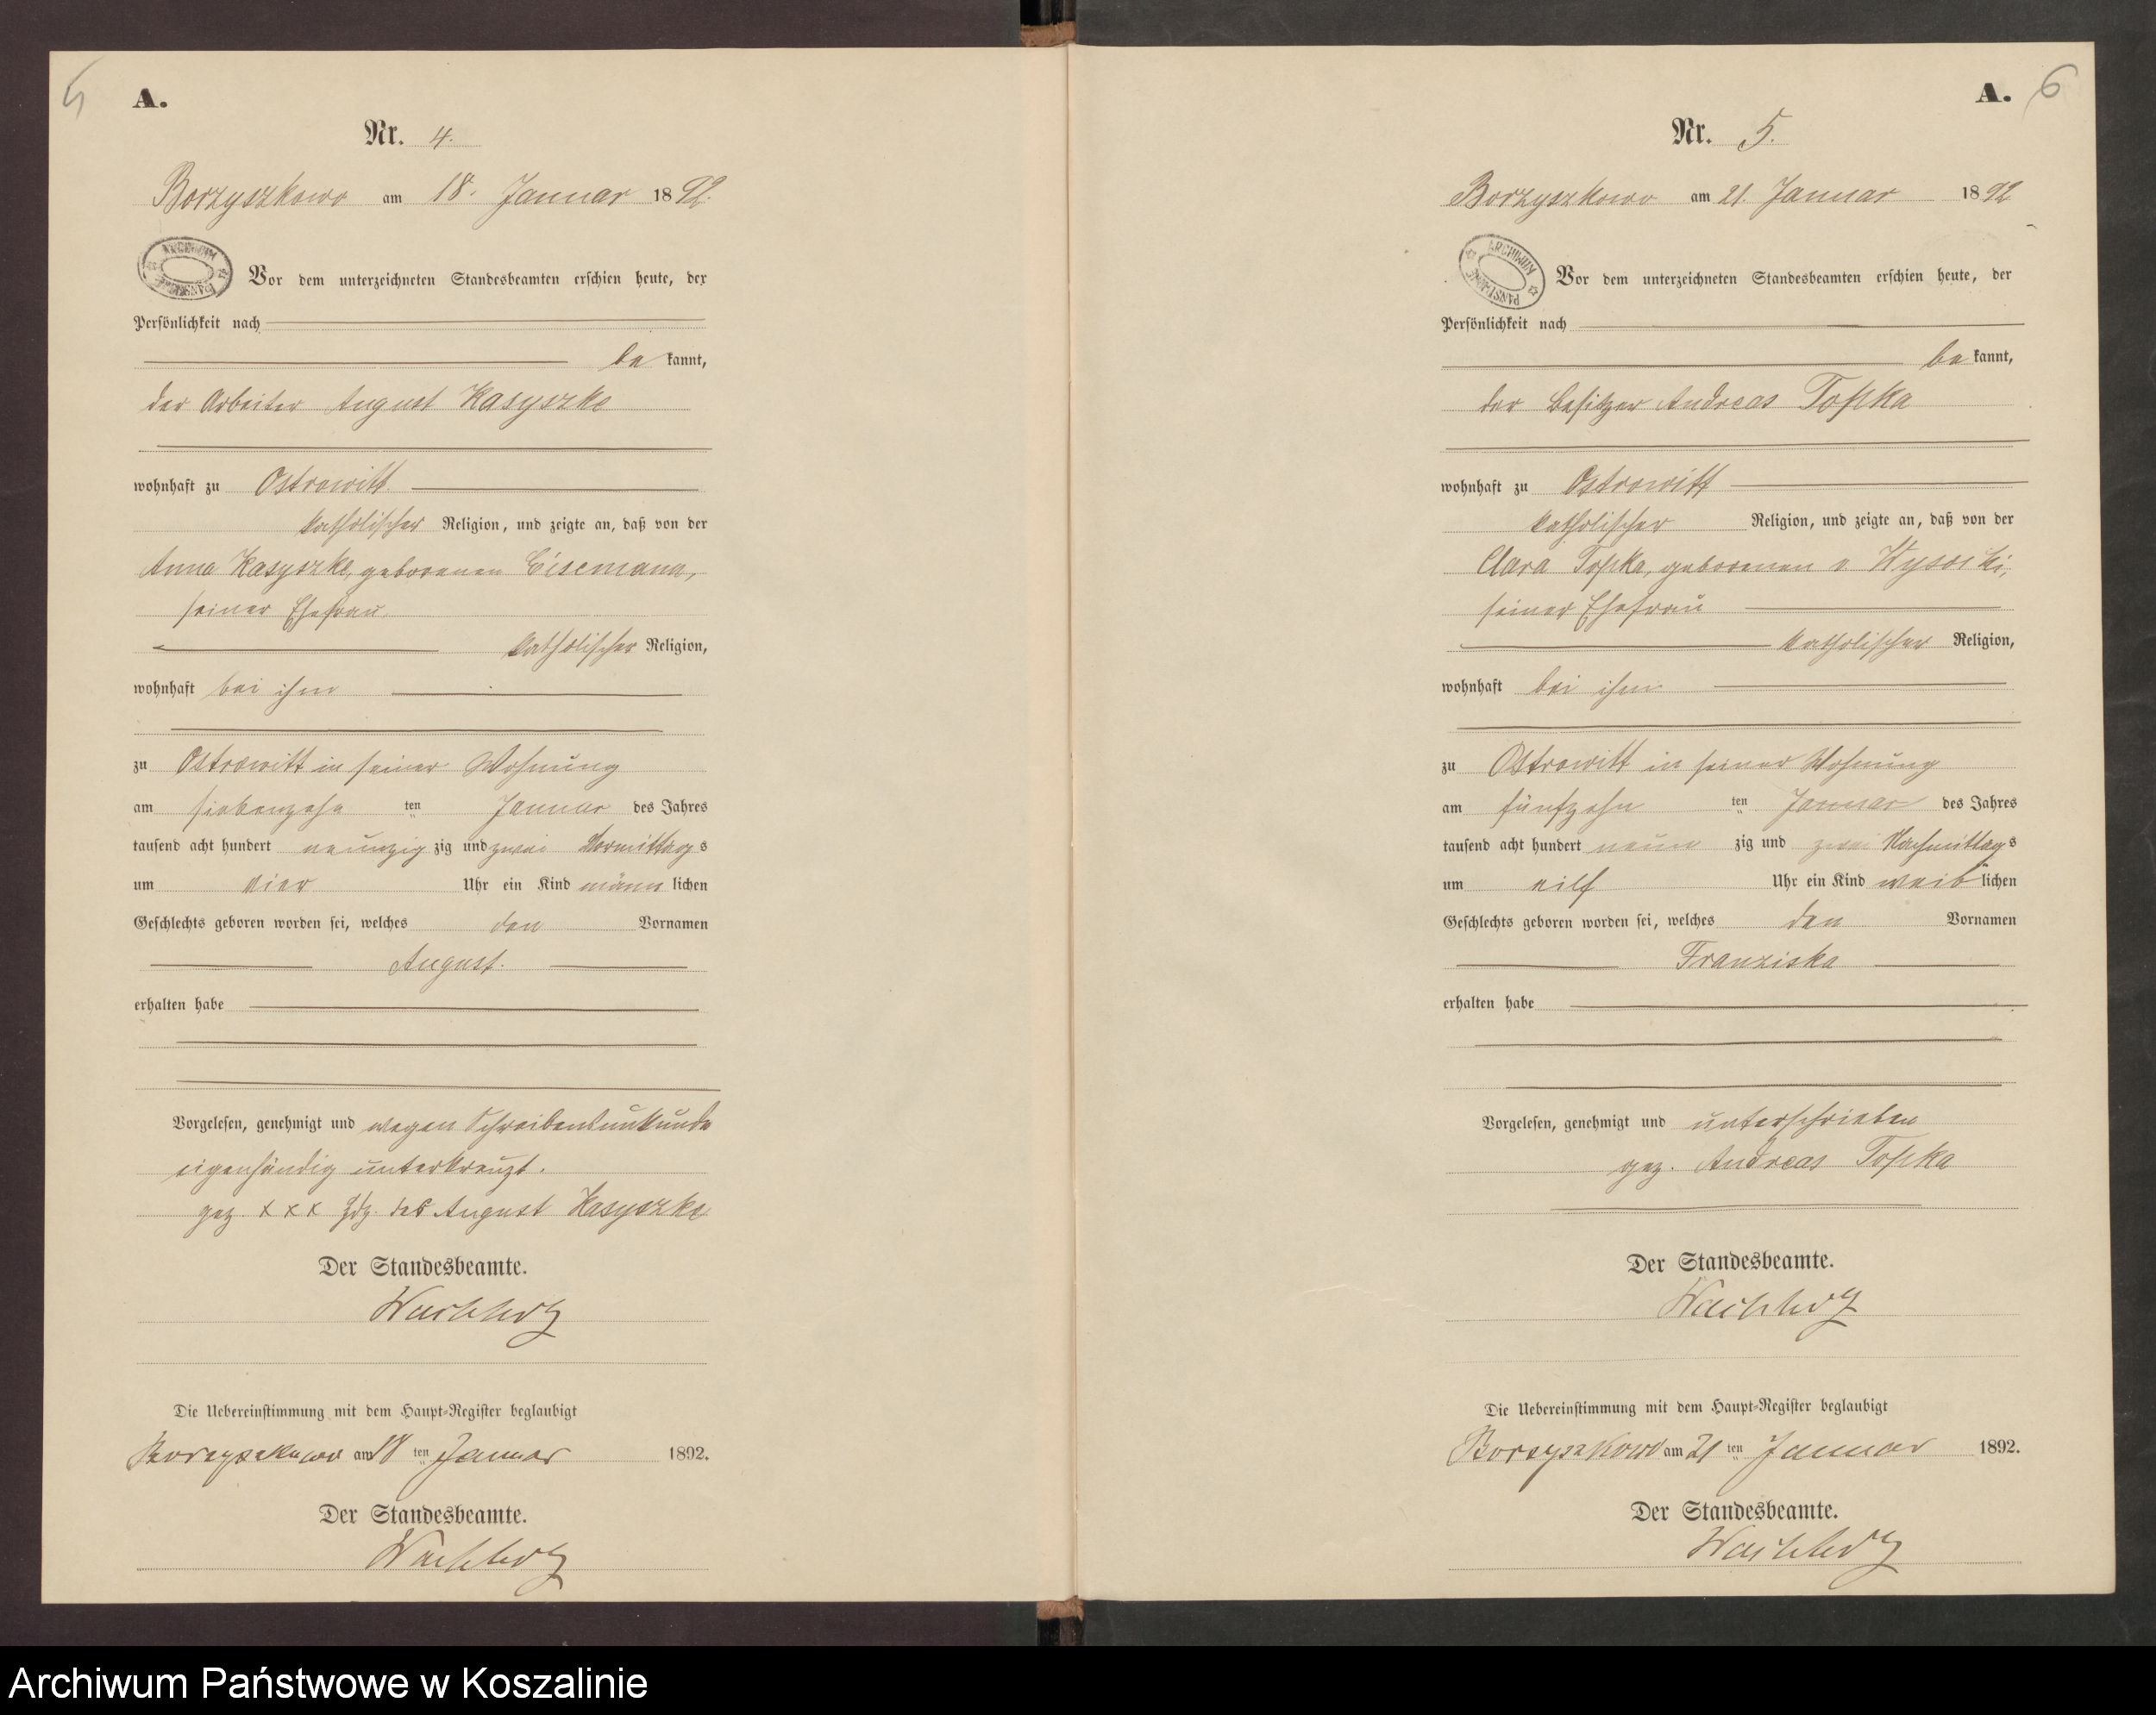 5
A.
Nr. 4.
Borzyszkowo am 18. Januar 1892.
ARCHIWUM PAŃSTWOWE
Vor dem unterzeichneten Standesbeamten erschien heute, der
Persönlichkeit nach
bekannt,
der Arbeiter August Kasyszke
wohnhaft zu Ostrowitt
katholischer Religion, und zeigte an, daß von der
Anna Kasyszke, geborenen Eisemann,
seiner Ehefrau
katholischer Religion,
wohnhaft bei ihm
zu Ostrowitt in seiner Wohnung
am siebenzehn ten Januar des Jahres
tausend acht hundert neunzig zig und zwei Vormittags
um vier Uhr ein Kind männlichen
Geschlechts geboren worden sei, welches den Vornamen
August.
erhalten habe
Vorgelesen, genehmigt und wegen Schreibensunkunde
eigenhändig unterkreuzt.
gez. x x x Hdz. des August Kasyszke
Der Standesbeamte.
Wachholz
Die Uebereinstimmung mit dem Haupt-Register beglaubigt
Borzyszkowo am 18 ten Januar 1892.
Der Standesbeamte.
Wachholz
A. 6
Nr. 5.
Borzyszkowo am 21. Januar 1892
ARCHIWUM PAŃSTWOWE
Vor dem unterzeichneten Standesbeamten erschien heute, der
Persönlichkeit nach
bekannt,
der Besitzer Andreas Topka
wohnhaft zu Ostrowitt
katholischer Religion, und zeigte an, daß von der
Clara Topka, geborenen v Wysocki,
seiner Ehefrau
katholischer Religion,
wohnhaft bei ihm
zu Ostrowitt in seiner Wohnung
am fünfzehn ten Januar des Jahres
tausend acht hundert neun zig und zwei Nachmittags
um eilf Uhr ein Kind weiblichen
Geschlechts geboren worden sei, welches den Vornamen
Franziska
erhalten habe
Vorgelesen, genehmigt und unterschrieben
gez. Andreas Topka
Der Standesbeamte.
Wachholz
Die Uebereinstimmung mit dem Haupt-Register beglaubigt
Borzyszkowo am 21 ten Januar 1892.
Der Standesbeamte.
Wachholz
Archiwum Państwowe w Koszalinie